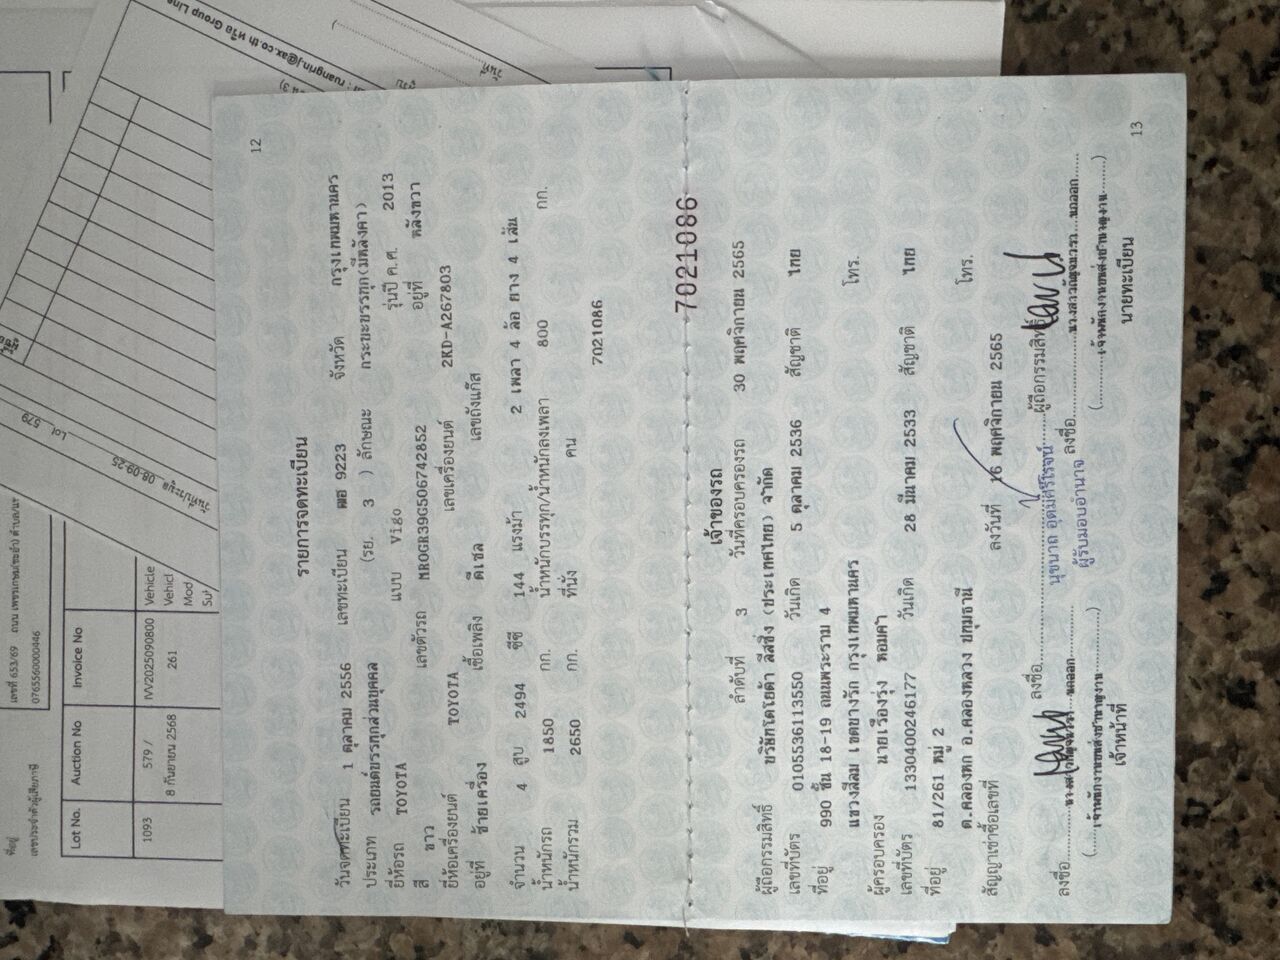 12
รายการจดทะเบียน
วันจดทะเบียน 1 ตุลาคม 2556 เลขทะเบียน ฒฮ 9223 จังหวัด กรุงเทพมหานคร
ประเภท รถยนต์บรรทุกส่วนบุคคล (รย. 3 ) ลักษณะ กระบะบรรทุก(มีหลังคา)
ยี่ห้อรถ TOYOTA แบบ Vigo รุ่นปี ค.ศ. 2013
สี ขาว เลขตัวรถ MR0GR39G506742852 อยู่ที่ หลังขวา
ยี่ห้อเครื่องยนต์ TOYOTA เลขเครื่องยนต์ 2KD-A267803
อยู่ที่ ซ้ายเครื่อง เชื้อเพลิง ดีเซล เลขถังแก๊ส
จำนวน 4 สูบ 2494 ซีซี 144 แรงม้า 2 เพลา 4 ล้อ ยาง 4 เส้น
น้ำหนักรถ 1850 กก. น้ำหนักบรรทุก/น้ำหนักลงเพลา 800 กก.
น้ำหนักรวม 2650 กก. ที่นั่ง คน
7021086
7021086
เจ้าของรถ
ลำดับที่ 3 วันที่ครอบครองรถ 30 พฤศจิกายน 2565
ผู้ถือกรรมสิทธิ์ บริษัทโตโยต้า ลีสซิ่ง (ประเทศไทย) จำกัด
เลขที่บัตร 0105536113550 วันเกิด 5 ตุลาคม 2536 สัญชาติ ไทย
ที่อยู่ 990 ชั้น 18-19 ถนนพระราม 4
แขวงสีลม เขตบางรัก กรุงเทพมหานคร โทร.
ผู้ครอบครอง นายเรืองรุ่ง หอมคำ
เลขที่บัตร 1330400246177 วันเกิด 28 มีนาคม 2533 สัญชาติ ไทย
ที่อยู่ 81/261 หมู่ 2
ต.คลองหก อ.คลองหลวง ปทุมธานี โทร.
สัญญาเช่าซื้อเลขที่ ลงวันที่ 16 พฤศจิกายน 2565
ลงชื่อ นุขนาถ อุดมศิริโรจน์ ผู้ถือกรรมสิทธิ์
ผู้รับมอบอำนาจ
ลงชื่อ ลงชื่อ
(เจ้าพนักงานขนส่งชำนาญงาน) (เจ้าพนักงานขนส่งชำนาญงาน)
เจ้าหน้าที่ นายทะเบียน
13
เลขที่ 653/69
0765560000446
ที่อยู่
เลขประจำตัวผู้เสียภาษี
Lot No. Auction No Invoice No
1093 579 / IVV2025090800 Vehicle
8 กันยายน 2568 261
วันที่ประมูล 08-09-25 Lot 579
ruangrin.j@ax.co.th หรือ Group Line
วันที่